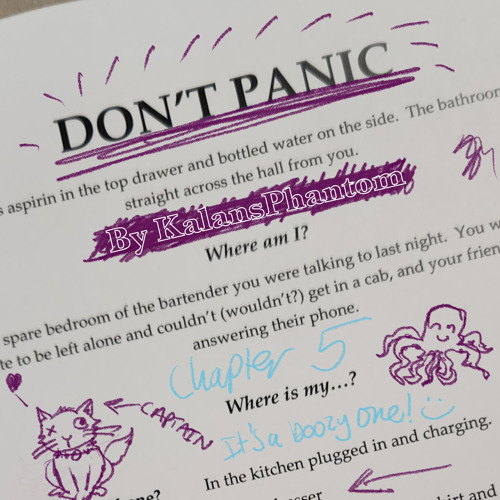 DON'T PANIC
aspirin in the top drawer and bottled water on the side. The bathroom
straight across the hall from you.
By KalansPhantom
Where am I?
spare bedroom of the bartender you were talking to last night. You
to be left alone and couldn't (wouldn't?) get in a cab, and your
answering their phone.
Chapter 5
Where is my...?
CAPTAIN
It's a boozy one!
In the kitchen plugged in and charging.
and